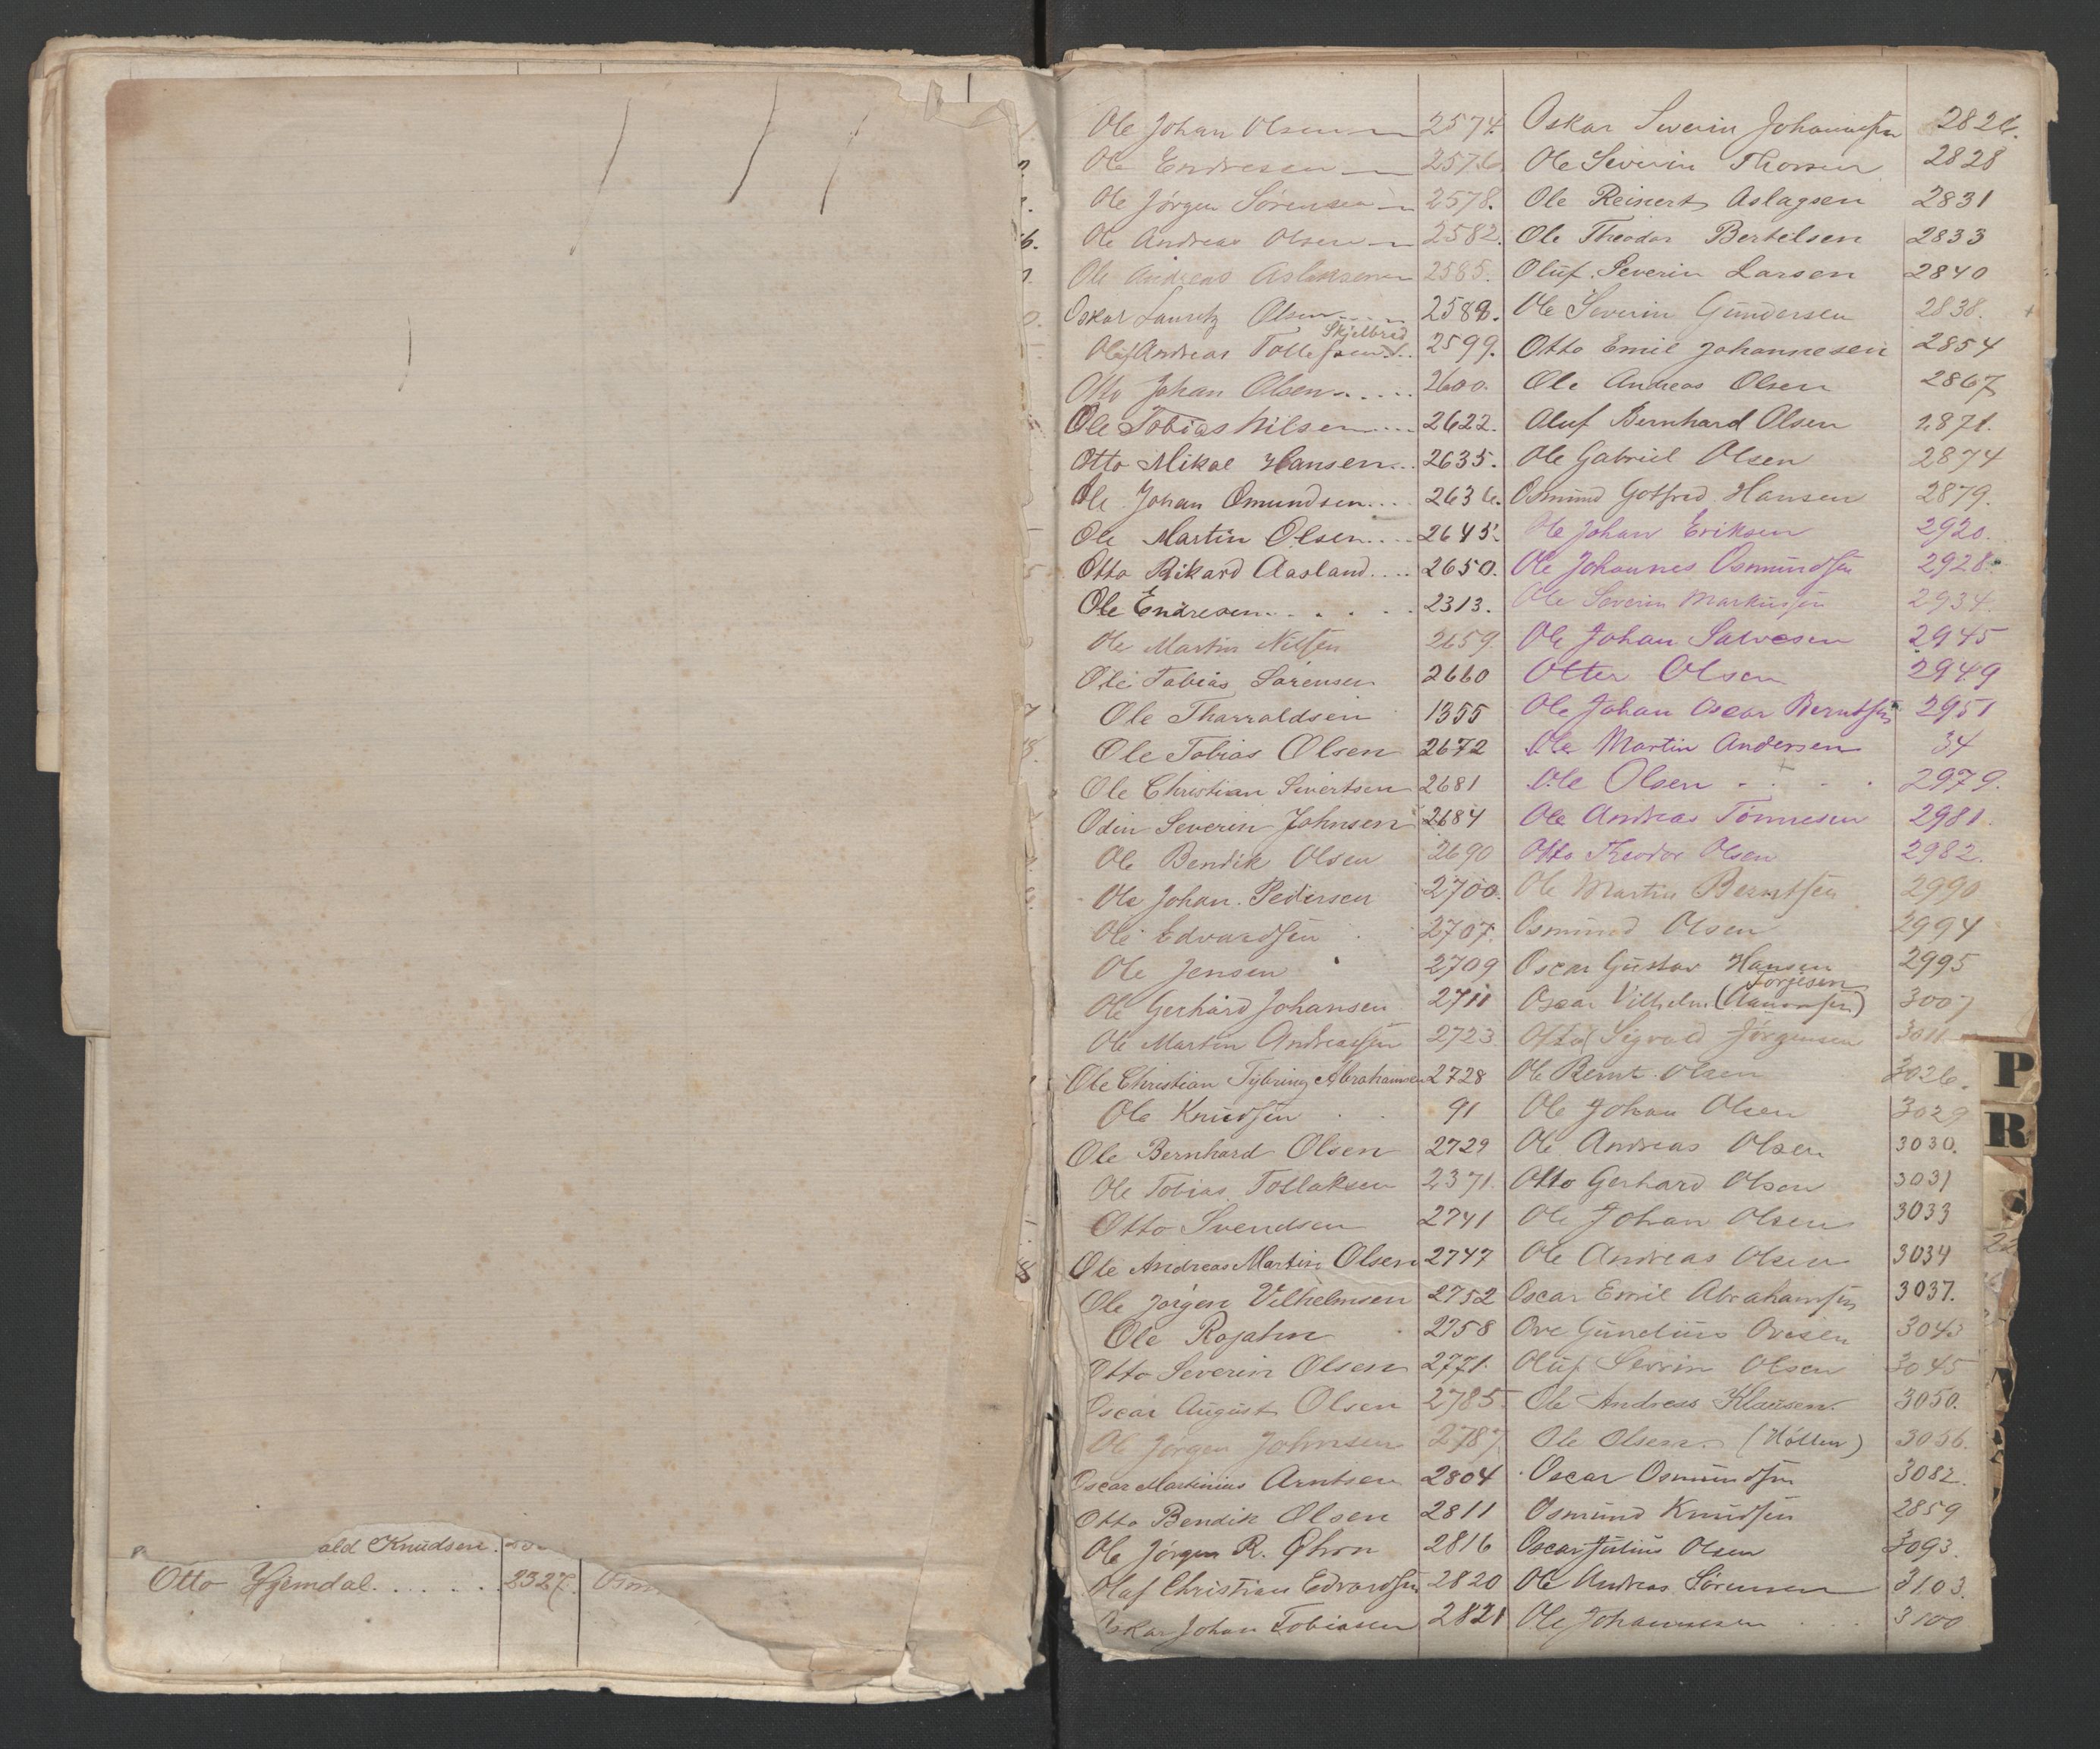 ald Knudsen.
Otto Hjemdal. . . . . . 2327.
Ole Johan Olsen 2574.
Ole Endresen 2576
Ole Jörgen Sörensen 2578.
Ole Andreas Olsen 2582.
Ole Andreas Aslaksen 2585.
Oskar Lauritz Olsen
Skjelbred
Oluf Andreas Tollefsen 2599.
Otto Johan Olsen . . . . 2600.
Ole Tobias Nilsen . . . 2622.
Otto Mikal Hansen . . 2635.
Ole Johan Omundsen . . . 2636.
Ole Martin Olsen . . . . 2645.
Otto Rikard Aasland . . . . 2650.
Ole Endresen . . . . . 2313.
Ole Martin Nilsen 2659.
Ole Tobias Sörensen 2660
Ole Tharraldsen 1355
Ole Tobias Olsen 2672
Ole Christian Sivertsen 2681
Odin Severin Johnsen 2684
Ole Bendik Olsen 2690
Ole Johan Pedersen 2700.
Ole Edvardsen 2707.
Ole Jensen 2709
Ole Gerhard Johansen 2711
Ole Martin Andreassen 2723
Ole Christian Tybring Abrahamsen 2728
Ole Knudsen 91
Ole Bernhard Olsen 2729
Ole Tobias Tollaksen 2371.
Otto Svendsen 2741
Ole Andreas Martin Olsen 2747
Ole Jörgen Vilhelmsen 2752
Ole Rojahn 2758
Otto Severin Olsen 2771.
Oscar August Olsen 2785.
Ole Jörgen Johnsen 2787
Oscar Martinius Arntsen 2804
Otto Bendik Olsen 2811
Ole Jörgen R. Øhrn 2816
Olaf Christian Edvardsen 2820
Oskar Johan Tobiasen 2821
Oskar Severin Johannesen 2826.
Ole Severin Thorsen 2828
Ole Reinert Aslagsen 2831
Ole Theodor Bertelsen 2833
Oluf Severin Larsen 2840
Ole Severin Gundersen 2838.
Otto Emil Johannesen 2854
Ole Andreas Olsen 2867
Oluf Bernhard Olsen 2871.
Ole Gabriel Olsen 2874
Osmund Gotfred Hansen 2879.
Ole Johan Eriksen 2920.
Ole Johannes Osmundsen 2928.
Ole Severin Markussen 2934.
Ole Johan Salvesen 2945
Otter Olsen 2949
Ole Johan Oscar Berntsen 2951
Ole Martin Andersen 34
Ole Olsen . . . . 2979.
Ole Andreas Tönnesen 2981.
Otto Theodor Olsen 2982.
Ole Martin Berntsen 2990
Osmund Olsen 2994
Oscar Gustav Hansen 2995
Torjesen
Oscar Vilhelm (Aanonsen) 3007
Otto Sigvald Jörgensen 3011
Ole Bernt Olsen 3026.
Ole Johan Olsen 3029
Ole Andreas Olsen 3030.
Otto Gerhard Olsen 3031
Ole Johan Olsen 3033
Ole Andreas Olsen 3034
Oscar Emil Abrahamsen 3037.
Ove Gundius Ovesen 3043
Oluf Severin Olsen 3045
Ole Andreas Klausen. 3050.
Ole Olsen. (Hölten) 3056.
Oscar Osmundsen 3082.
Osmund Knudsen 2859
Oscar Julius Olsen 3093.
Ole Andreas Sörensen 3103.
Ole Johannesen 3100
P
R
S